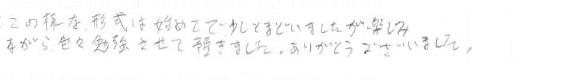 この様な形式は始めてで少しとまどいましたが楽しみ
ながら色々勉強させて頂きました。ありがとうございました。